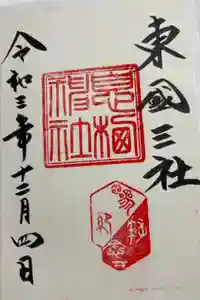 東國三社
息栖神社
令和三年十二月四日